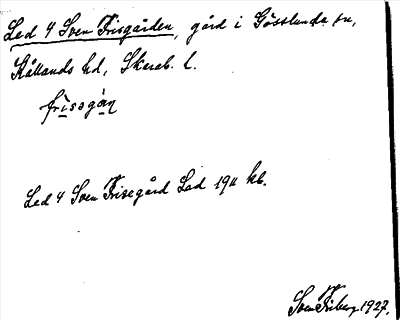 Led 4 Sven Frisgården, gård i Gösslunda sn,
Kållands hd, Skarab. l.
frisogån
Led 4 Sven Frisegård Lad 1911 kb.
Sven Friberg 1927.